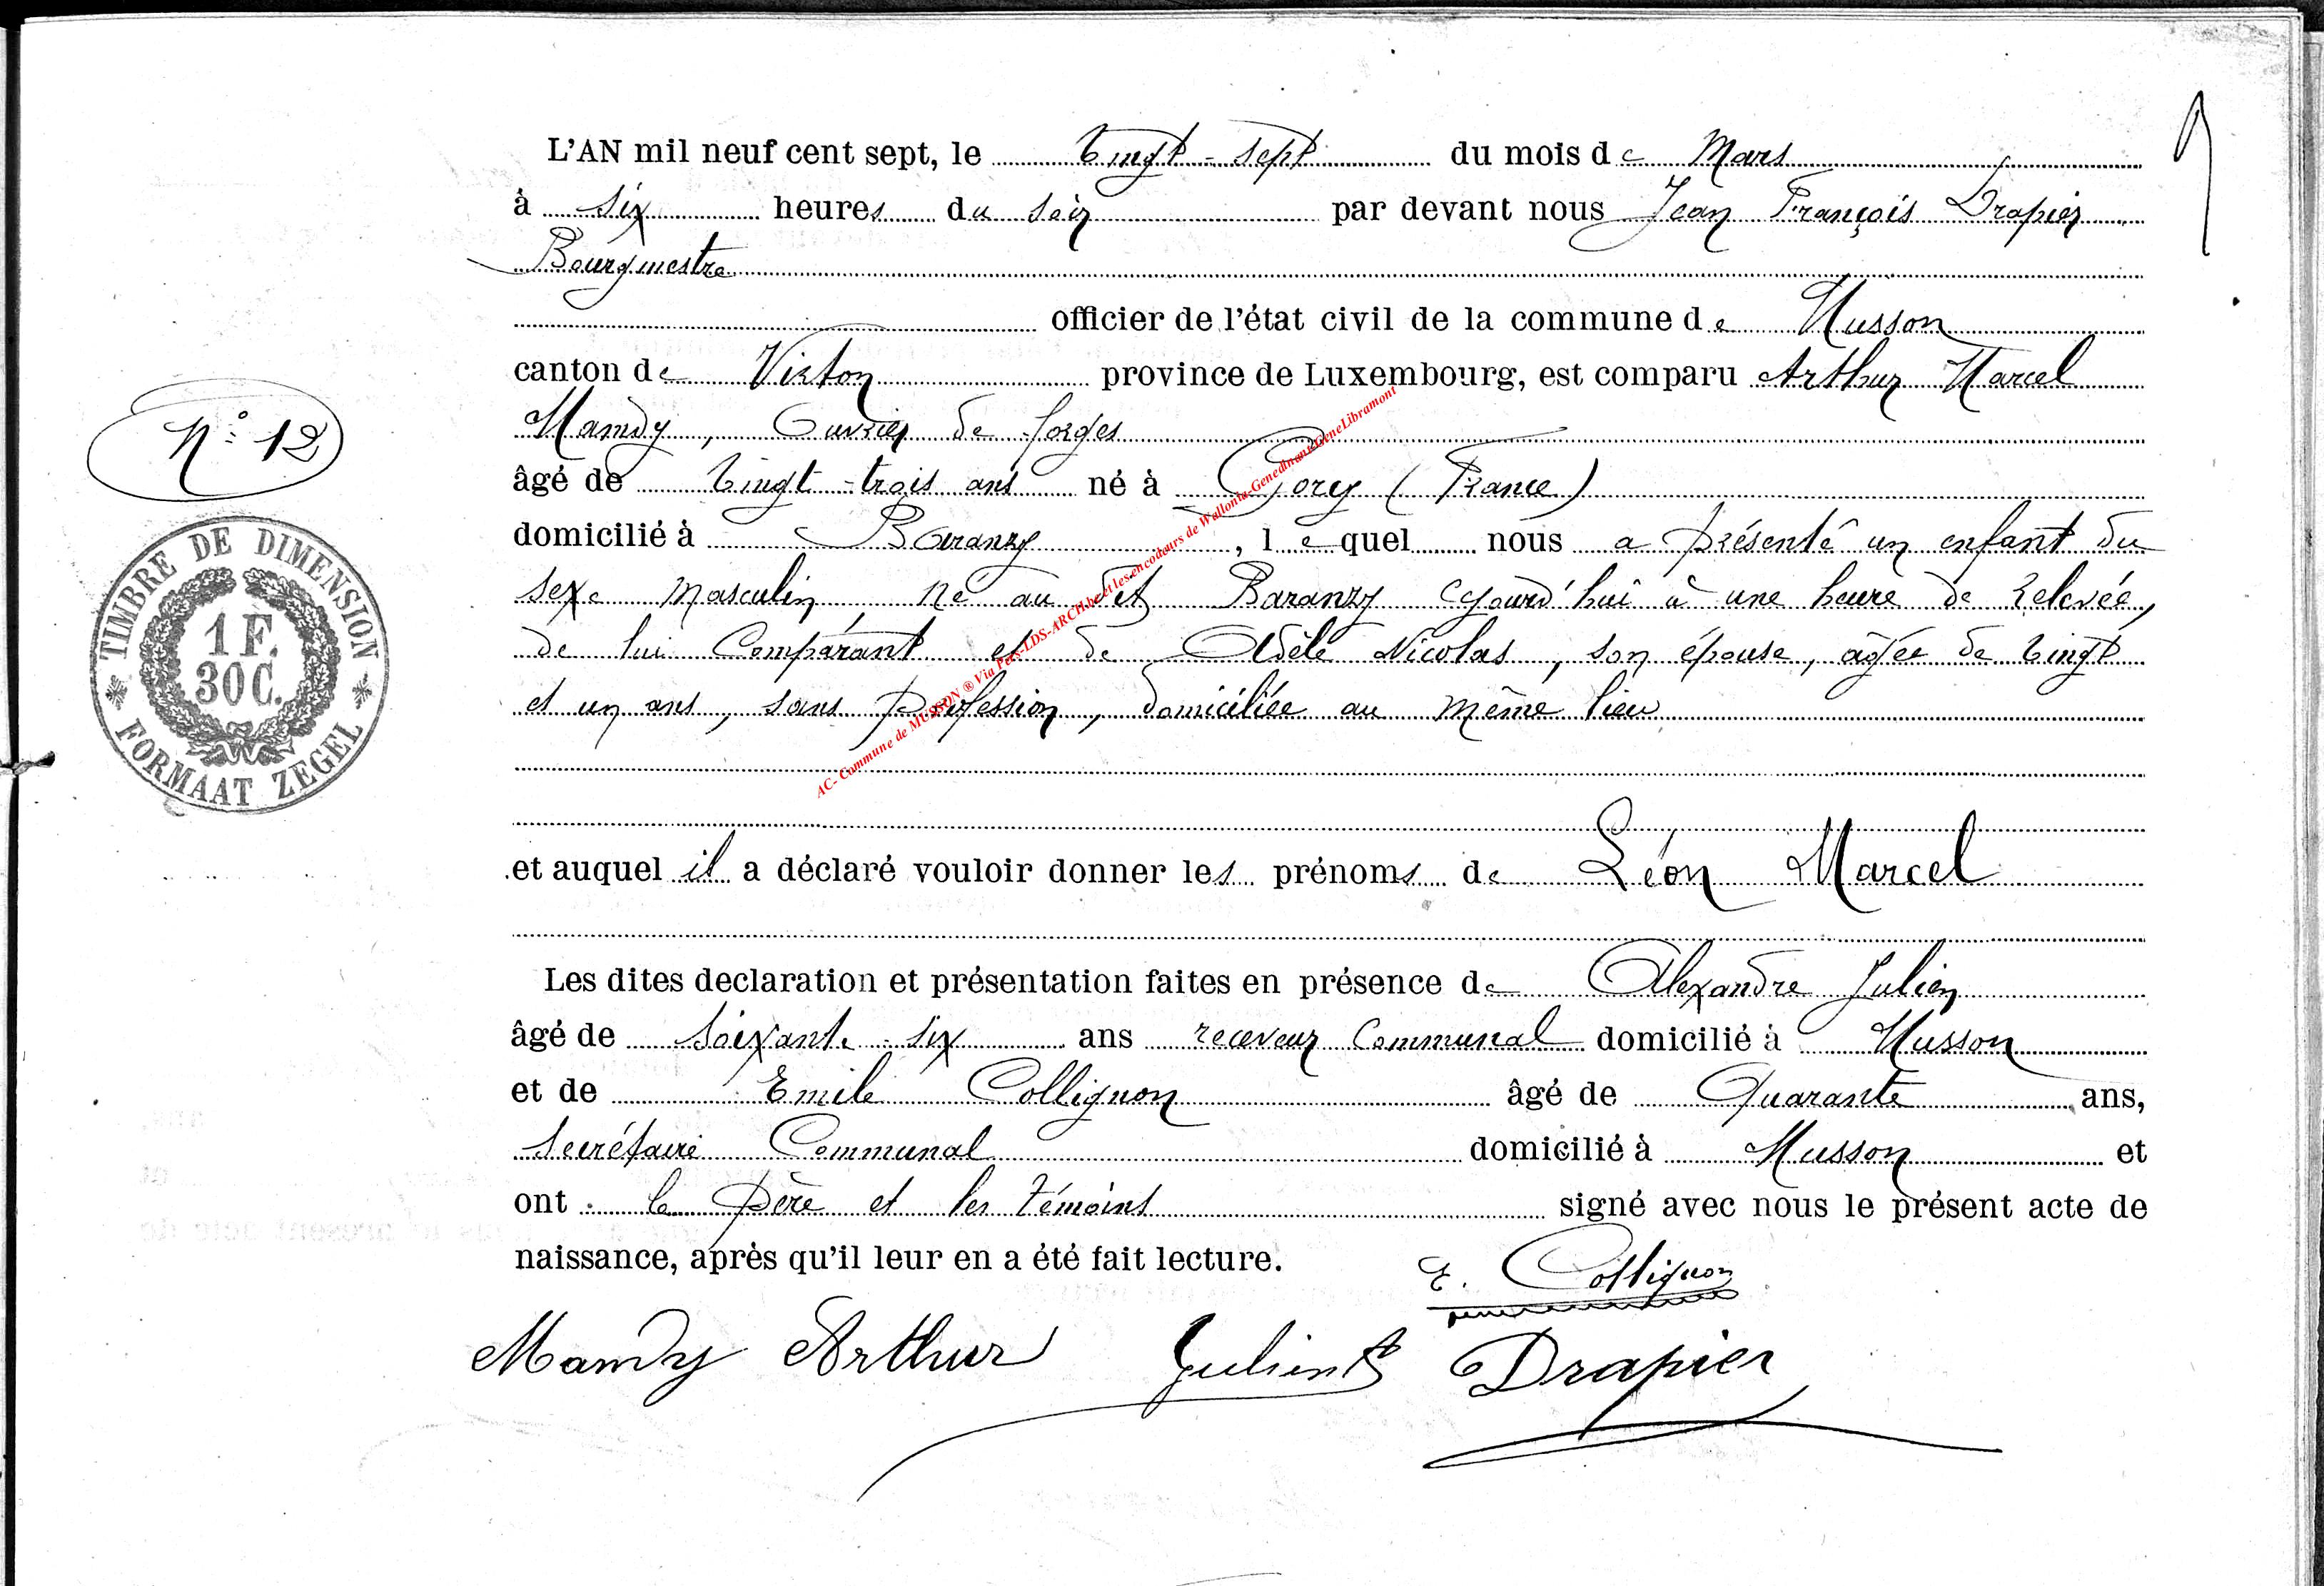 L'AN mil neuf cent sept, le vingt-sept du mois de Mars
à six heures du soir par devant nous Jean François Drapier
Bourgmestre
officier de l'état civil de la commune de Musson
canton de Virton province de Luxembourg, est comparu Arthur Marcel
Mandy, Ouvrier de forges
N° 12
âgé de vingt-trois ans né à Gorcy (France)
domicilié à Baranzy, lequel nous a présenté un enfant du
sexe masculin, né au dit Baranzy cejourd'hui à une heure de relevée,
de lui Comparant et de Adèle Nicolas, son épouse, âgée de vingt
et un ans, sans profession, domiciliée au même lieu
TIMBRE DE DIMENSION
1 F.
30 C.
FORMAAT ZEGEL
AC- Commune de MUSSON ® Via Pers-LDS-ARCH.be et les encodeurs de Wallonia-Genedinant-GeneLibramont
et auquel il a déclaré vouloir donner les prénoms de Léon Marcel
Les dites declaration et présentation faites en présence de Alexandre Julien
âgé de soixante-six ans receveur Communal domicilié à Musson
et de Emile Collignon âgé de Quarante ans,
secrétaire Communal domicilié à Musson et
ont le père et les témoins signé avec nous le présent acte de
naissance, après qu'il leur en a été fait lecture.
E. Collignon
Mandy Arthur Julien Drapier